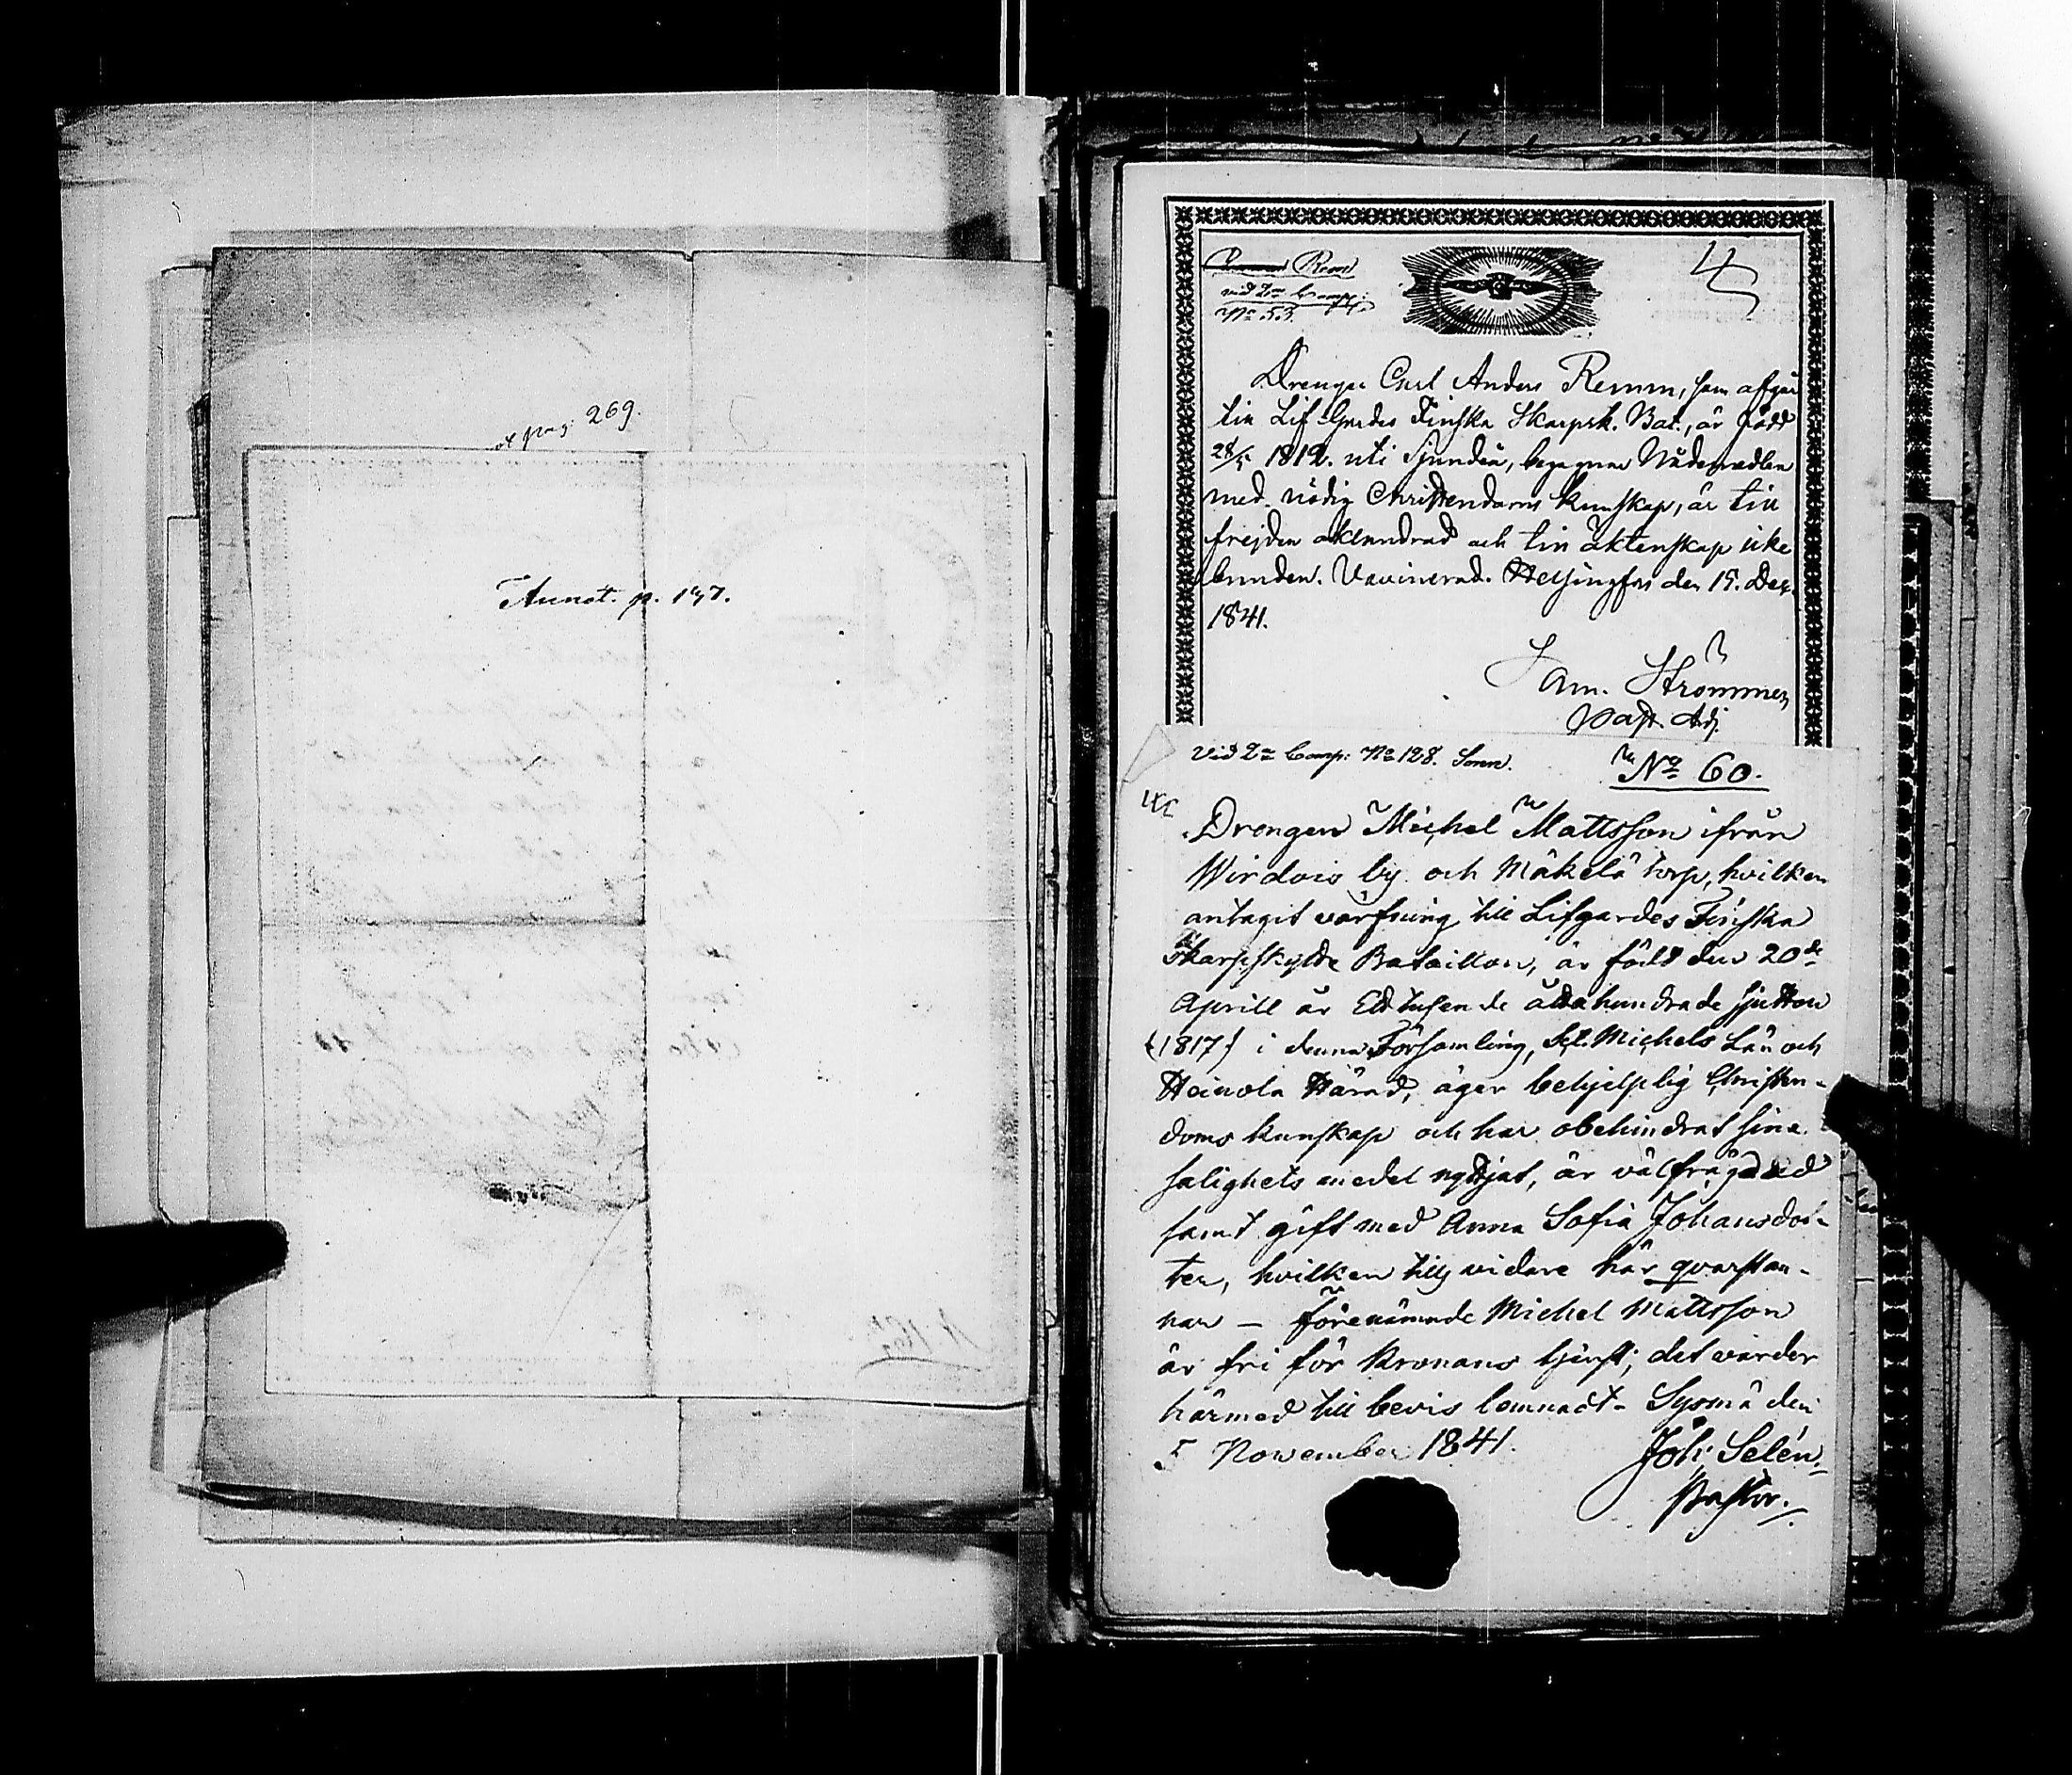 pag. 269.
Annot. p. 147.
Remm
vid 2ra Comp:
No 53.
Drengen Carl Anders Remm, som afgår
till Lif Gardes Finska Skarpsk. Bat., är född
28/5 1812. uti Sjundeå, begagnar Nådemedlen
med nödig Christendoms kunskap, är till
frejden oklandrad och till äktenskap icke
bunden. Vaccinerad. Helsingfors den 15. Dec.
1841.
Sam. Strömmer
Past. Adj.
Vid 2ra Comp: No 128. Sonn.
No 60.
Drengen Michel Mattsson ifrån
Wirdois by och Mäkelä torp, hvilken
antagit värfning till Lifgardes Finska
Skarpskytte Bataillon, är född den 20de
Aprill år Ett tusende åttahundrade sjutton
(1817) i denna Församling, Sct. Michels Län och
Heinola Härad, äger behjelplig Christen-
doms kunskap och har obehindrat sina
salighets medel nyttjat, är välfrägdad
samt gift med Anna Sofia Johansdot-
ter, hvilken tills vidare här qvarstan-
nar – förenämnde Michel Mattsson
är fri för Kronans tjenst; det varder
härmed till bevis lemnadt. Sysmä den
5 November 1841.
Joh. Selén.
Pastor.